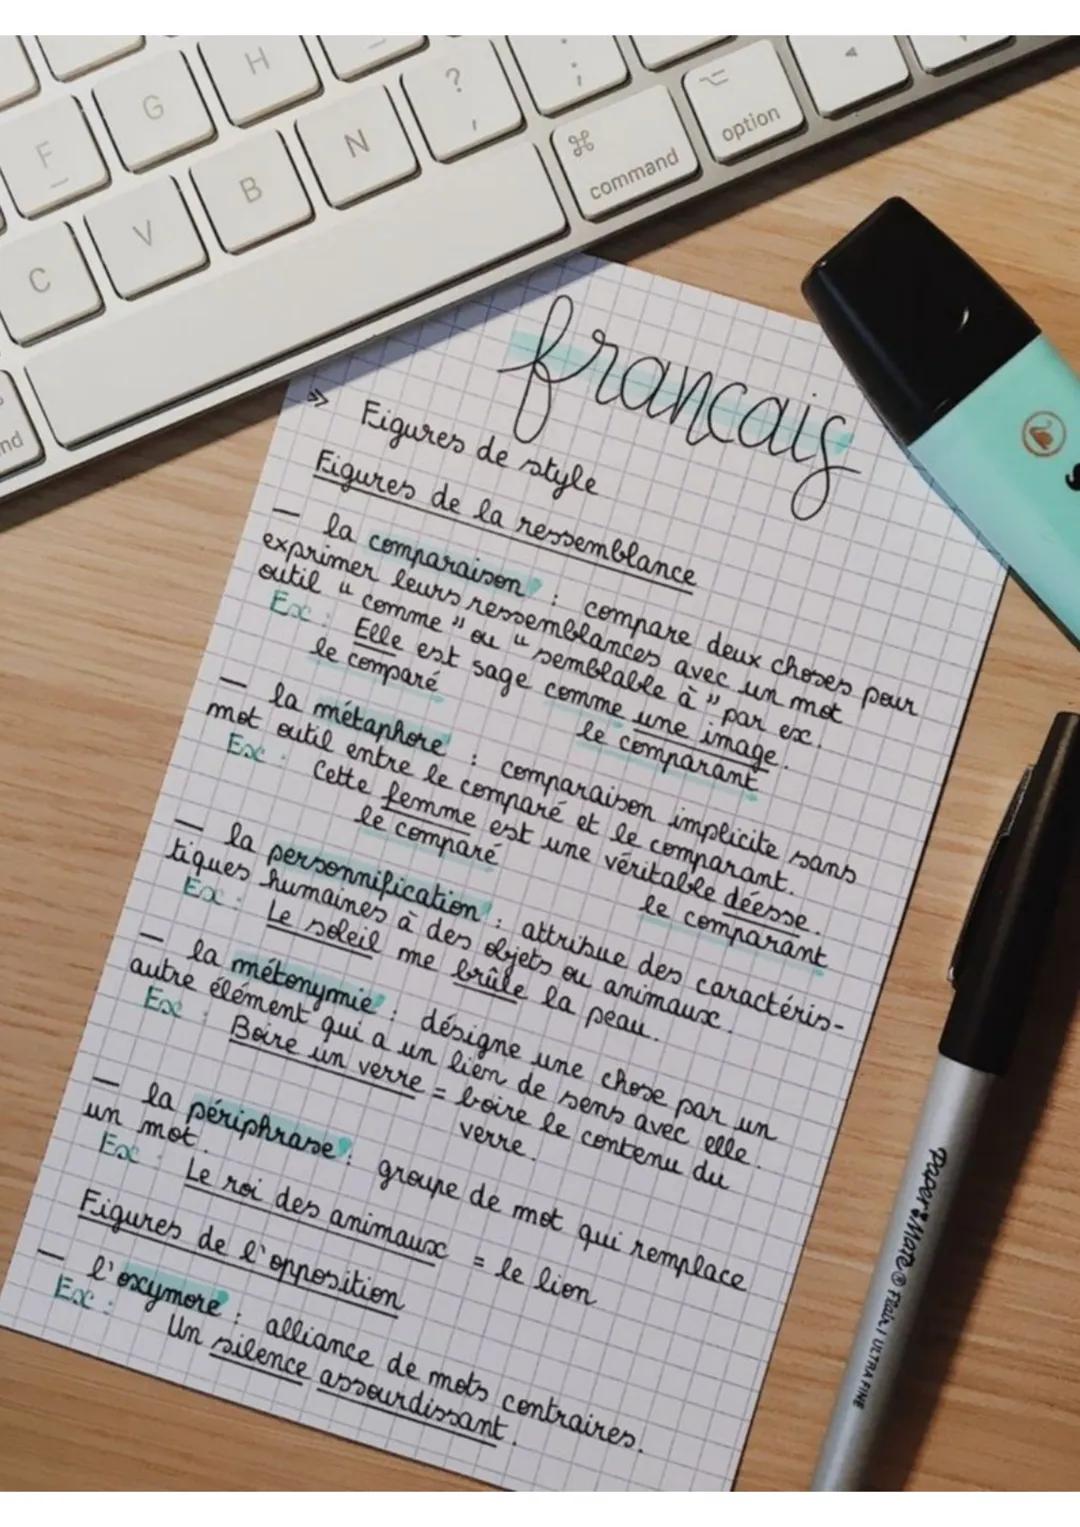 H
G
F
?
,
;
N
B
V
C
⌘
command
⌥
option
nd
francais
» Figures de style
Figures de la ressemblance
— la comparaison : compare deux choses pour
exprimer leurs ressemblances avec un mot
outil " comme " ou " semblable à " par ex.
Ex : Elle est sage comme une image.
le comparé le comparant
— la métaphore : comparaison implicite sans
mot outil entre le comparé et le comparant.
Ex : Cette femme est une véritable déesse.
le comparé le comparant
— la personnification : attribue des caractéris-
tiques humaines à des objets ou animaux.
Ex : Le soleil me brûle la peau.
— la métonymie : désigne une chose par un
autre élément qui a un lien de sens avec elle.
Ex : Boire un verre = boire le contenu du
verre.
— la périphrase : groupe de mot qui remplace
un mot.
Ex : Le roi des animaux = le lion
Figures de l'opposition
— l'oxymore : alliance de mots contraires.
Ex : Un silence assourdissant.
Paper Mate ® Flair | ULTRA FINE